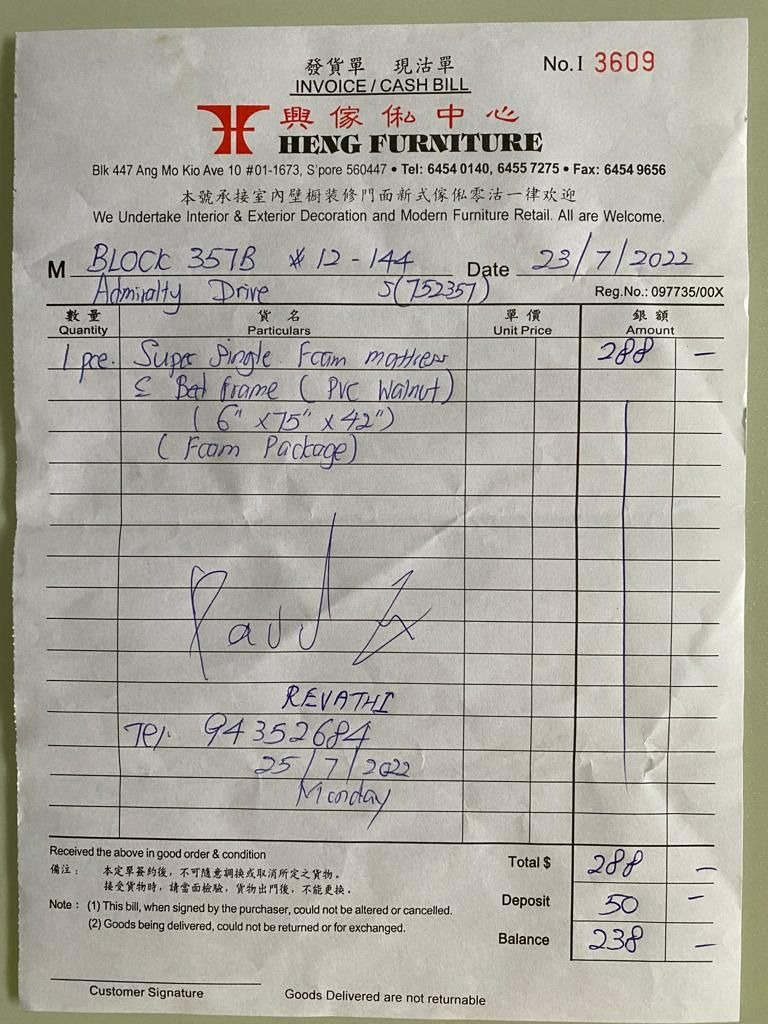 發貨單 現沽單
INVOICE / CASH BILL
No. I 3609
興傢俬中心
HENG FURNITURE
Blk 447 Ang Mo Kio Ave 10 #01-1673, S'pore 560447 • Tel: 6454 0140, 6455 7275 • Fax: 6454 9656
本號承接室內壁櫥装修門面新式傢俬零沽一律欢迎
We Undertake Interior & Exterior Decoration and Modern Furniture Retail. All are Welcome.
M BLOCK 357B #12-144 Date 23/7/2022
Admiralty Drive S(752357) Reg.No.: 097735/00X
數量 貨名 單價 銀額
Quantity Particulars Unit Price Amount
1 pce. Super Single Foam mattress 288 –
& Bed frame (PVC Walnut)
(6" x 75" x 42")
(Foam Package)
Paid
REVATHI
Tel: 94352684
25/7/2022
Monday
Received the above in good order & condition
備注： 本定單簽約後，不可隨意調换或取消所定之貨物。
接受貨物時，請當面檢驗，貨物出門後，不能更换。
Note : (1) This bill, when signed by the purchaser, could not be altered or cancelled.
(2) Goods being delivered, could not be returned or for exchanged.
Total $ 288 –
Deposit 50 –
Balance 238 –
Customer Signature Goods Delivered are not returnable